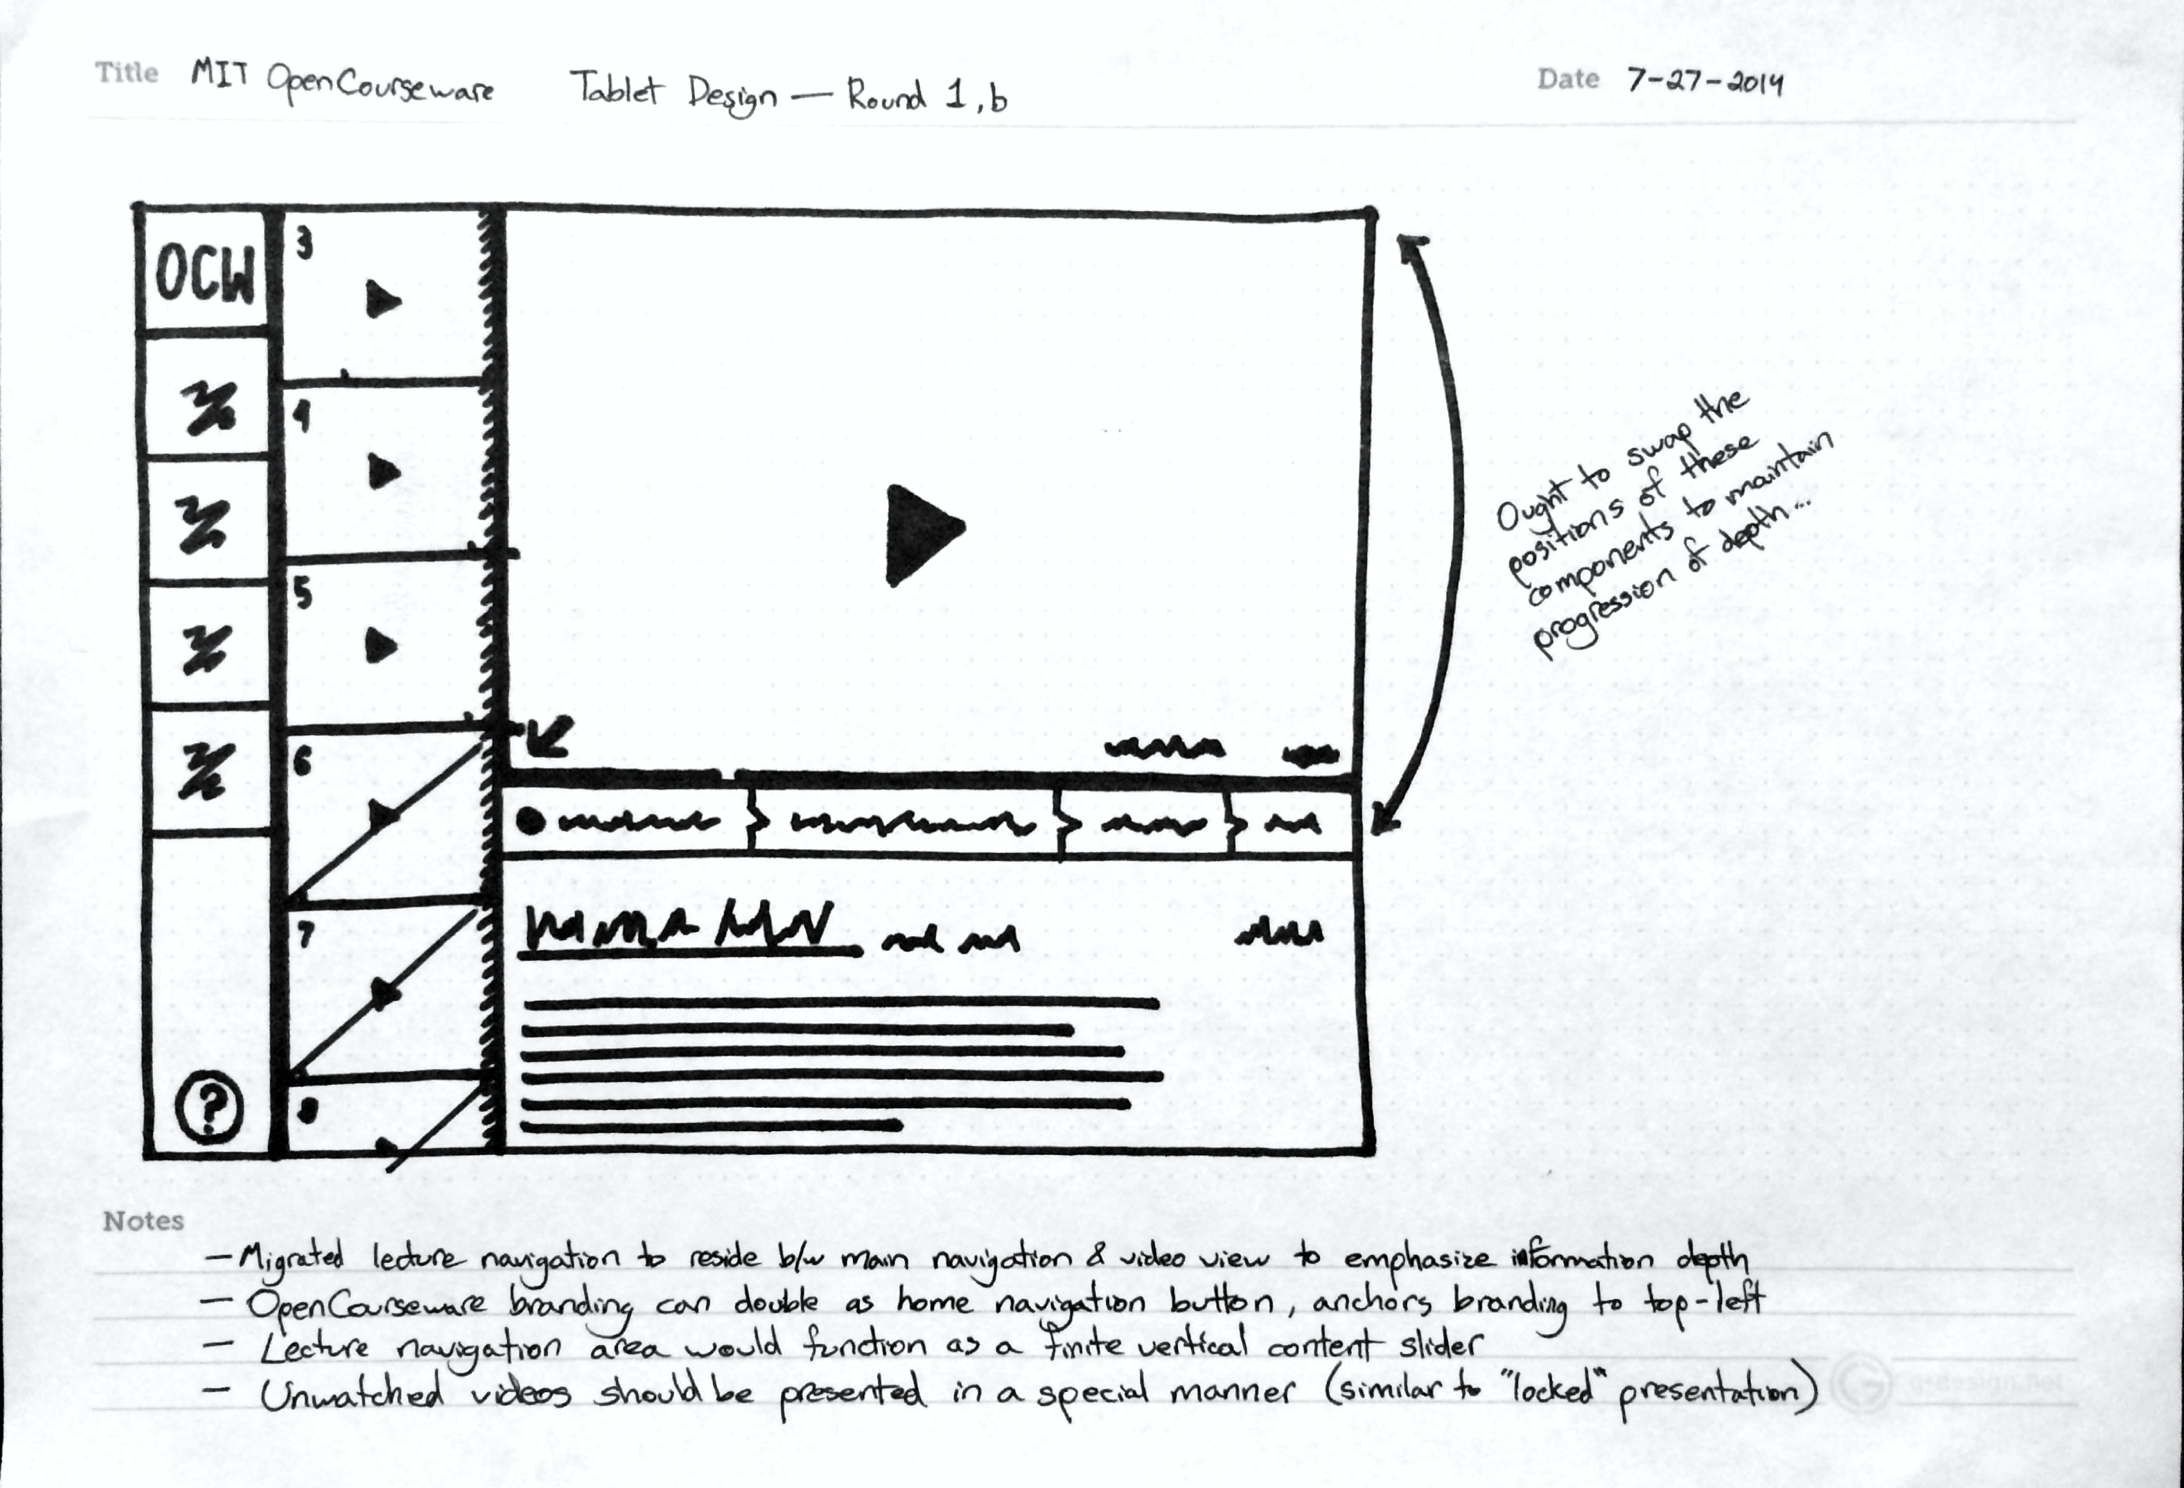 Title MIT OpenCourseware Tablet Design — Round 1,b
Date 7-27-2014
OCW
3
4
5
6
7
8
?
Ought to swap the
positions of these
components to maintain
progression of depth...
Notes
— Migrated lecture navigation to reside b/w main navigation & video view to emphasize information depth
— OpenCourseware branding can double as home navigation button, anchors branding to top-left
— Lecture navigation area would function as a finite vertical content slider
— Unwatched videos should be presented in a special manner (similar to "locked" presentation)
g-design.net